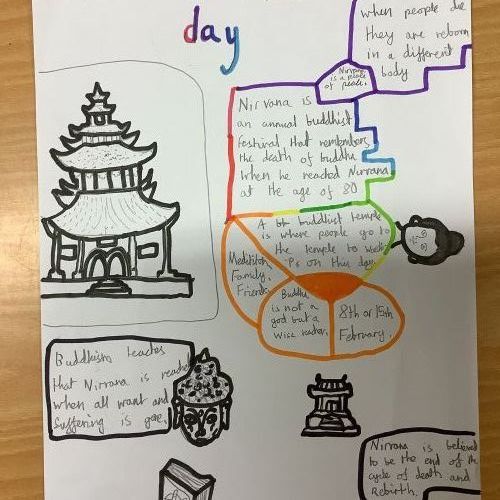 day
when people die
they are reborn
in a different
body
Nirvana
is a state
of peace.
Nirvana is
an annual buddhist
festival that remembers
the death of buddha
when he reached Nirvana
at the age of 80
A bh buddhist temple
is where people go to
the temple to
on this day
Meditation,
Family,
Friends
Buddha
is not a
god but a
wise teacher.
8th or 15th
February.
Buddhism teaches
that Nirvana is reached
when all want and
suffering is gone.
Nirvana is believed
to be the end of the
cycle of death and
Rebirth.